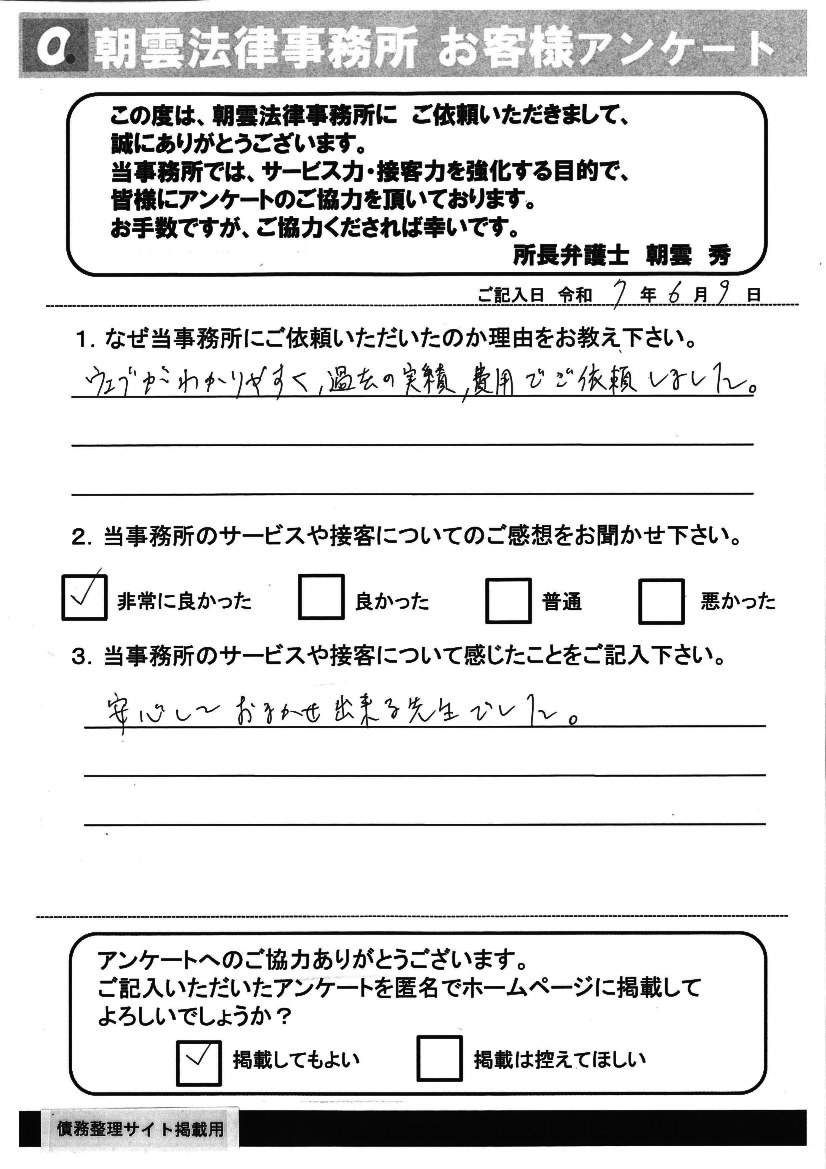 a. 朝雲法律事務所 お客様アンケート
この度は、朝雲法律事務所に ご依頼いただきまして、
誠にありがとうございます。
当事務所では、サービス力・接客力を強化する目的で、
皆様にアンケートのご協力を頂いております。
お手数ですが、ご協力くだされば幸いです。
所長弁護士 朝雲 秀
ご記入日 令和 7 年 6 月 9 日
1. なぜ当事務所にご依頼いただいたのか理由をお教え下さい。
ウェブがわかりやすく,過去の実績,費用でご依頼しました。
2. 当事務所のサービスや接客についてのご感想をお聞かせ下さい。
✓ 非常に良かった 良かった 普通 悪かった
3. 当事務所のサービスや接客について感じたことをご記入下さい。
安心しておまかせ出来る先生でした。
アンケートへのご協力ありがとうございます。
ご記入いただいたアンケートを匿名でホームページに掲載して
よろしいでしょうか?
✓ 掲載してもよい 掲載は控えてほしい
債務整理サイト掲載用